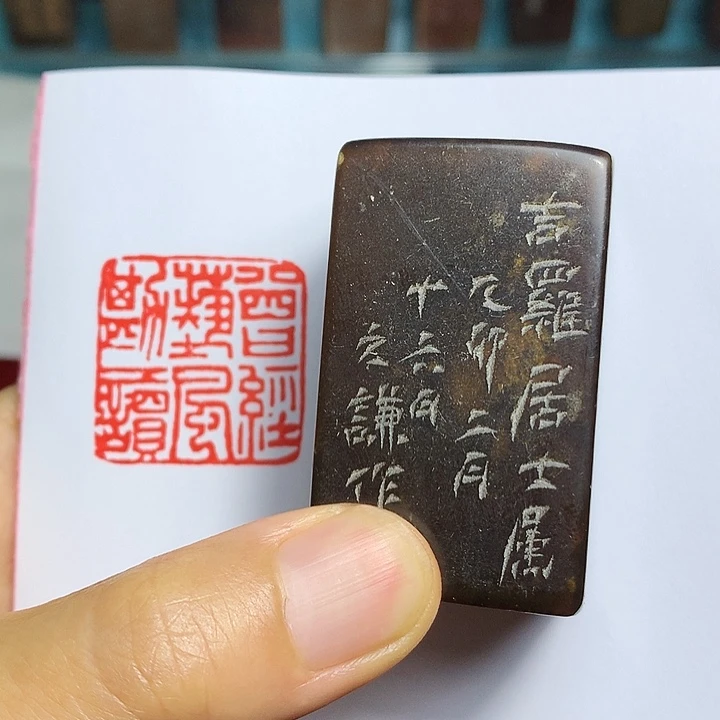 曾經
藝風
勘讀
吉羅居士屬
乙卯二月
十六日
之謙作